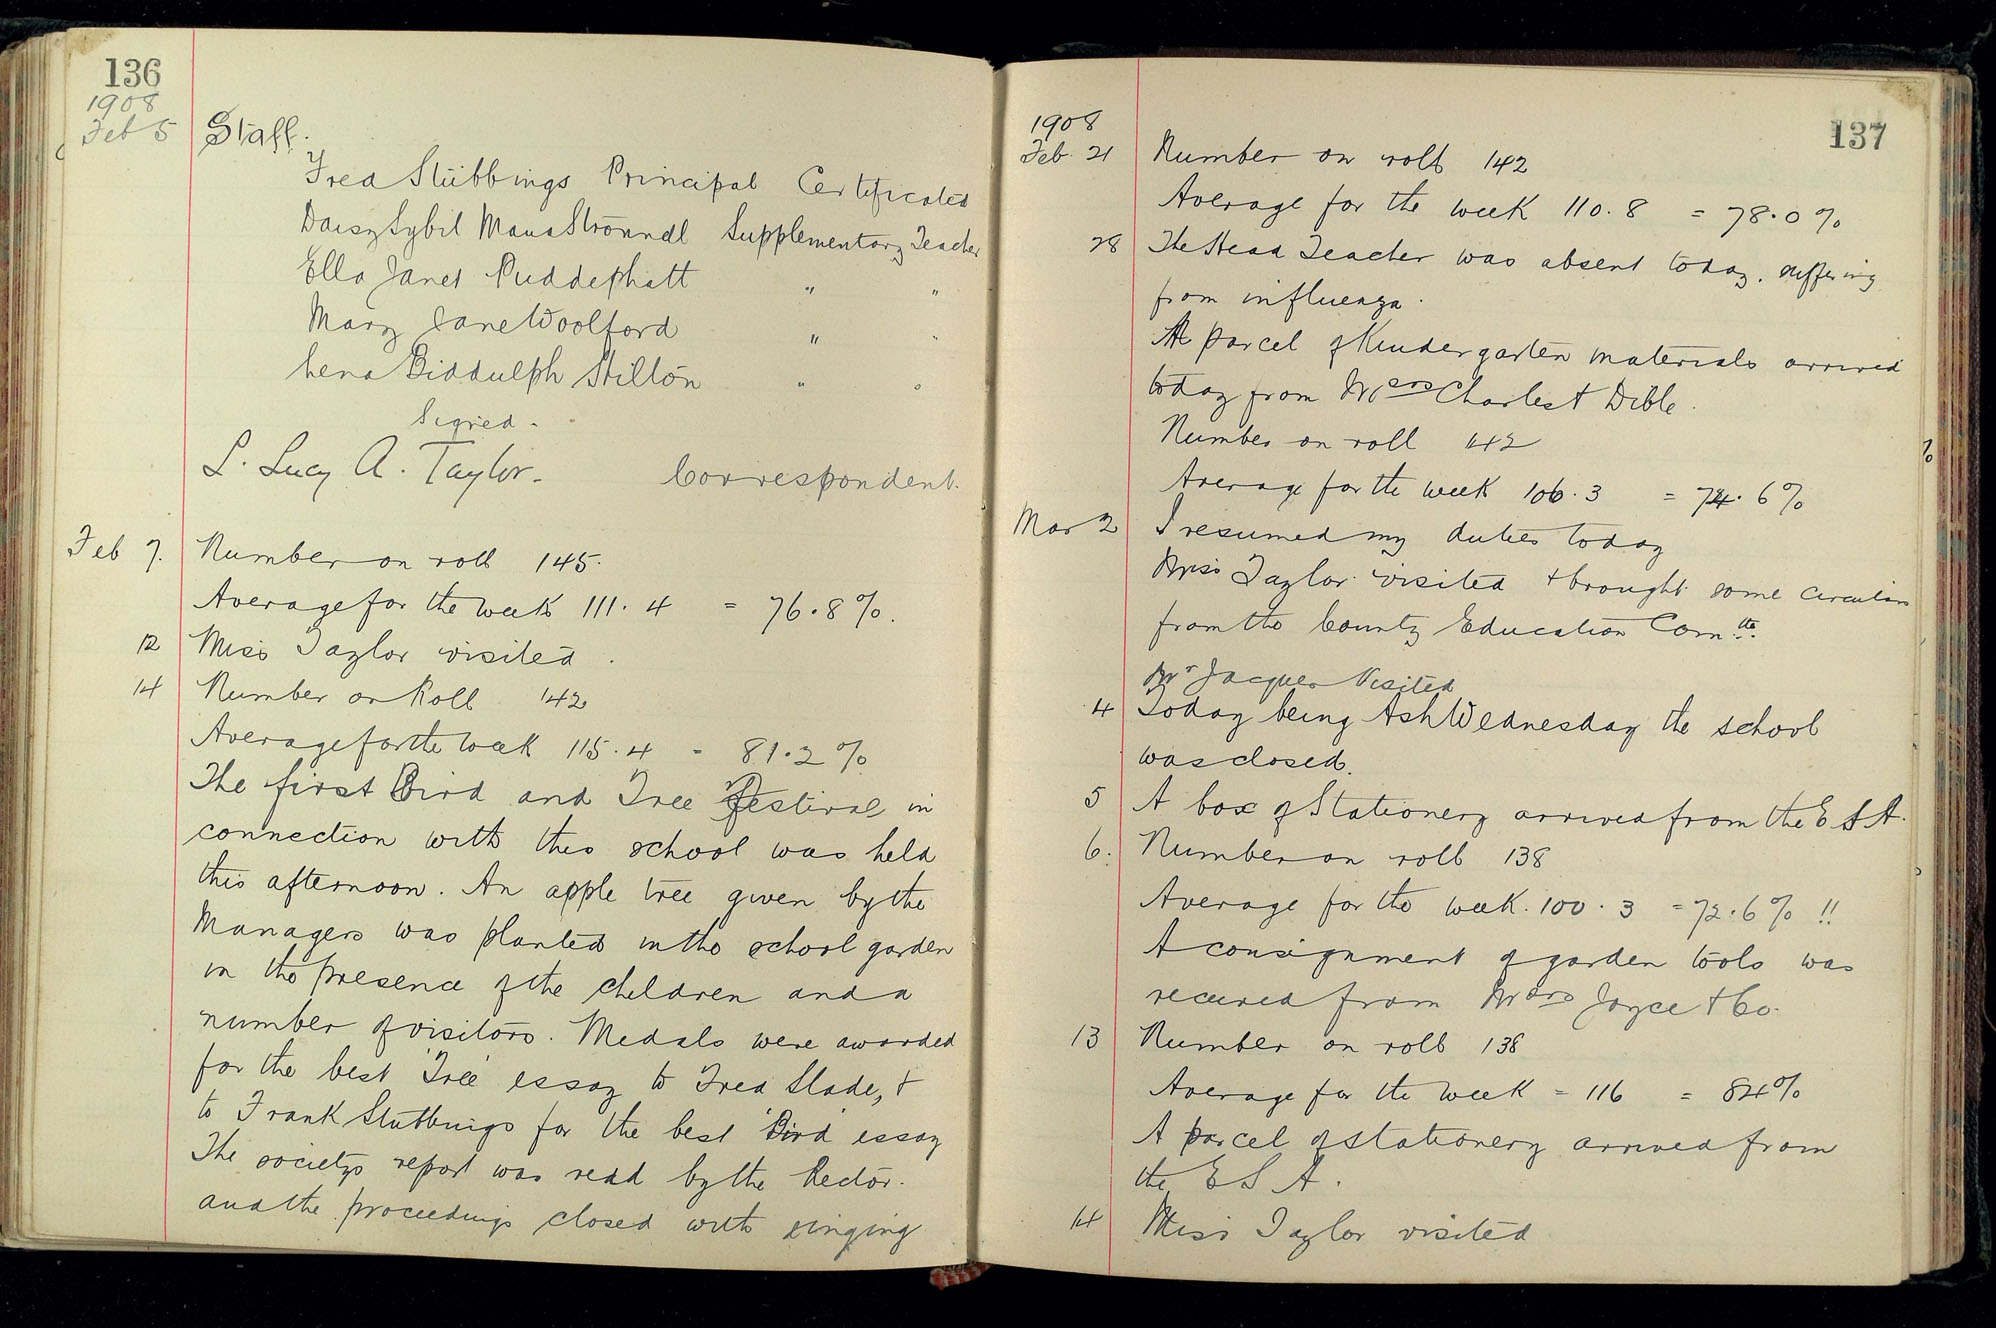 136
1908
Feb 5 Staff.
Fred Stubbings Principal Certificated
Daisy Sybil Supplementary Teacher
Ella Janet Puddephatt " "
Mary Jane Woolford " "
Lena Biddulph Stilton " "
Signed.
L. Lucy A. Taylor. Correspondent.
Feb 7. Number on roll 145.
Average for the week 111.4 = 76.8%.
12 Miss Taylor visited.
14 Number on Roll 142
Average for the week 115.4 = 81.2%
The first Bird and Tree Festival in
connection with this school was held
this afternoon. An apple tree given by the
Managers was planted in the school garden
in the presence of the children and a
number of visitors. Medals were awarded
for the best 'Tree' essay to Fred Slade, &
to Frank Stubbings for the best 'Bird' essay
The society's report was read by the Rector.
and the proceedings closed with singing
137
1908
Feb. 21 Number on roll 142
Average for the week 110.8 = 78.0%
28 The Head Teacher was absent today, suffering
from influenza.
A parcel of Kindergarten materials arrived
today from Messrs Charles & Dible.
Number on roll 142
Average for the week 106.3 = 74.6%
Mar 2 I resumed my duties today
Miss Taylor visited & brought some circulars
from the County Education Comtte.
Mr Jacques Visited
4 Today being Ash Wednesday the school
was closed.
5 A box of Stationery arrived from the E S A.
6. Number on roll 138
Average for the week. 100.3 = 72.6% !!
A consignment of garden tools was
received from Messrs Joyce & Co.
13 Number on roll 138
Average for the week = 116 = 84%
A parcel of stationery arrived from
the E S A.
14 Miss Taylor visited